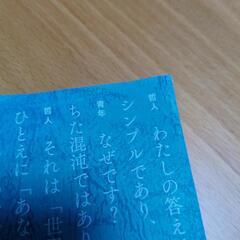 哲人 わたしの答え
シンプルであり、
青年 なぜです？
ちた混沌ではあり
哲人 それは「世
ひとえに「あな